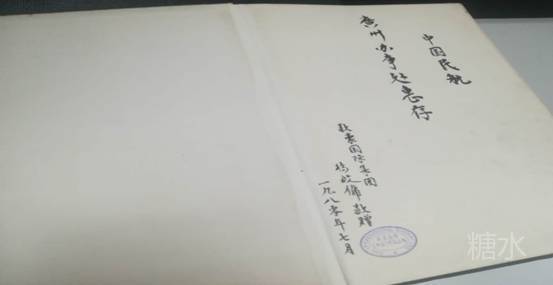 中国民航
广州办事处惠存
国际集团
敬赠
一九八零年七月
糖水